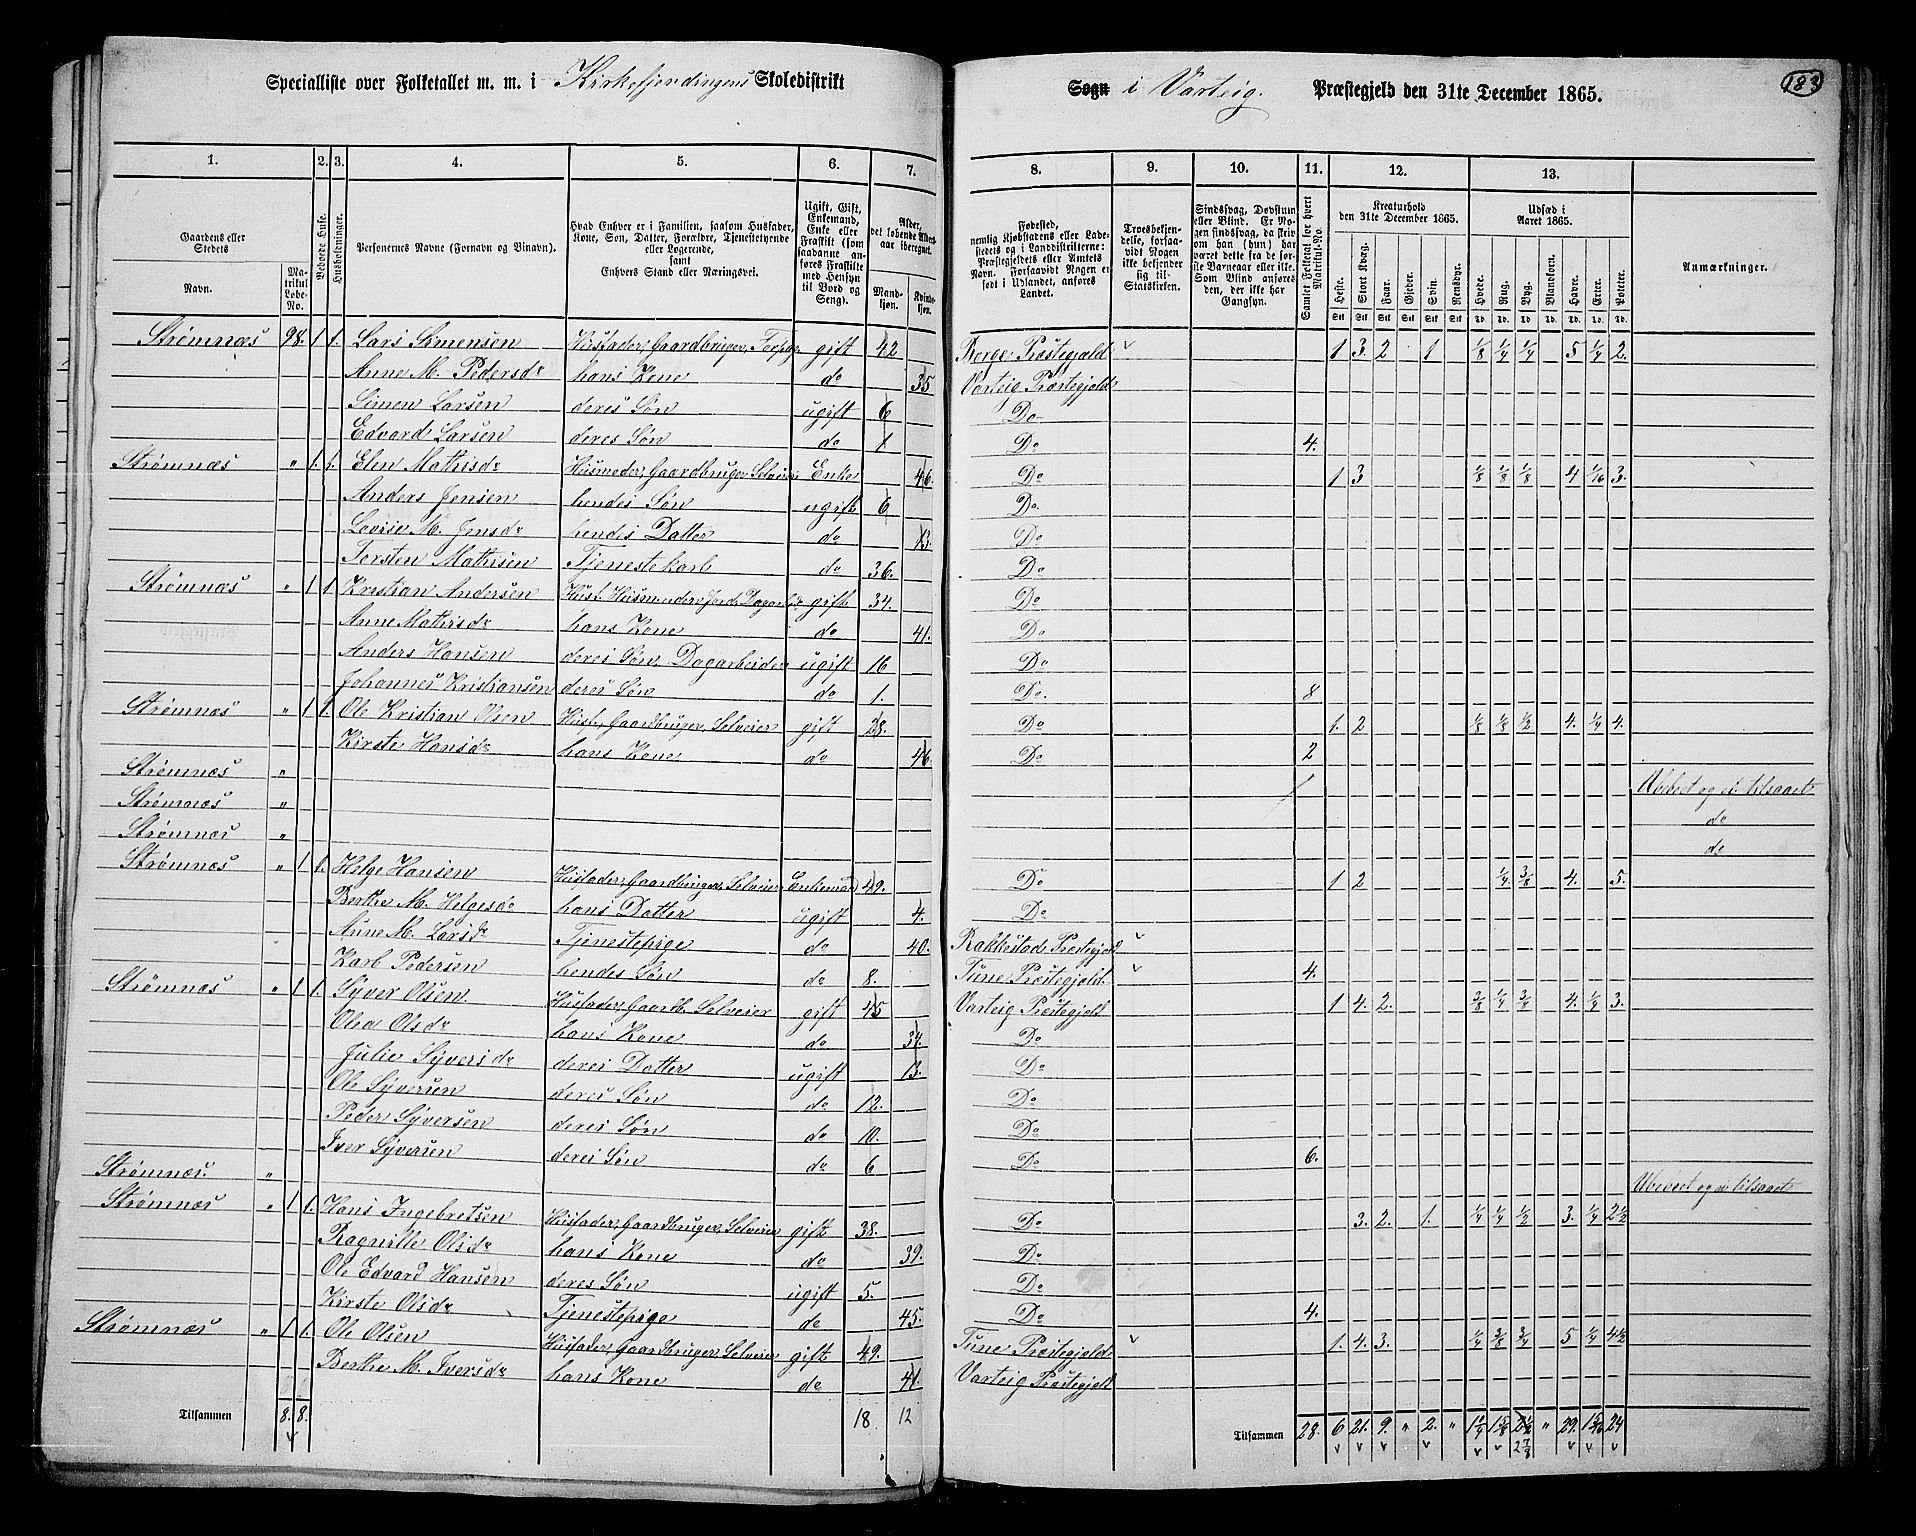 Specialliste over Folketallet m. m. i Kirkefjerdingens Skoledistrikt
Sogn i Varteig. Præstegjeld den 31te December 1865.
183
1. 2. 3. 4. 5. 6. 7.
8. 9. 10. 11. 12. 13.
Gaardens eller Stedets
Navn.
Matrikul Løbe-No.
Beboede Huse.
Husholdninger.
Personernes Navne (Fornavn og Binavn).
Hvad Enhver er i Familien, saasom Husfader, Kone, Søn, Datter, Forældre, Tjenestetyende eller Logerende, samt Enhvers Stand eller Næringsvei.
Ugift, Gift, Enkemand, Enke eller Fraskilt (som saadanne anføres Fraskilte med Hensyn til Bord og Seng).
Alder, det løbende Alders-aar iberegnet.
Mandkjøn. Kvindekjøn.
Fødested, nemlig Kjøbstadens eller Ladestedets og i Landdistrikterne: Præstegjeldets eller Amtets Navn. Forsaavidt Nogen er født i Udlandet, anføres Landet.
Troesbekjendelse, forsaavidt Nogen ikke bekjender sig til Statskirken.
Sindssvag, Døvstum eller Blind. Er Nogen sindssvag, da skriv om han (hun) har været dette fra de første Barneaar eller ikke. Som Blind anføres den, der ikke har Gangsyn.
Samlet Folketal for hvert Matrikul-No.
Kreaturhold den 31te December 1865.
Heste. Stort Kvæg. Faar. Gjeder. Svin. Rensdyr.
Stk Stk Stk Stk Stk Stk
Udsæd i Aaret 1865.
Hvede. Rug. Byg. Blandkorn. Havre. Erter. Poteter.
Td. Td. Td. Td. Td. Td. Td.
Anmærkninger.
Strømnæs 98. 1 1. Lars Simensen Husfader, Gaardbruger, Forpag gift 42 Borge Præstegjeld v 1 3. 2 1 1/8 1/4 1/4 5 1/4 2.
Anne M. Pedersdr hans Kone do 35 Varteig Præstegjeld
Simen Larsen deres Søn ugift 6 Do
Edvard Larsen deres Søn do 1 Do 4.
Strømnæs " 1. 1. Elen Mathisdr Husmoder, Gaardbruger Selveier Enke 46. Do 1 3 1/8 1/8 1/8 4 1/16 3.
Anders Jensen hendes Søn ugift 6 Do.
Lovise M. Jensdr hendes Datter do 13. Do
Torsten Mathisen Tjenestekarl do 36. Do
Strømnæs " 1 1. Kristian Andersen Husf. Husmand u. Jord, Dagarbeid gift 34. Do
Anne Mathisdr hans Kone do 41. Do
Anders Hansen deres Søn Dagarbeider ugift 16 Do
Johannes Kristiansen deres Søn do 1. Do. 8
Strømnæs " 1 1. Ole Kristian Olsen Husf., Gaardbruger, Selveier gift 28. Do 1. 2 1/8 1/8 1/2 4. 1/4 4.
Kirste Hansdr hans Kone do 46. Do 2
Strømnæs " Ubeboet og ei tilsaaet
Strømnæs " do
Strømnæs " do
Strømnæs " 1 1. Helge Hansen Husfader, Gaardbruger, Selveier Enkemand 49. Do 1 2 1/4 3/8 4. 5.
Berthe M. Helgesdr hans Datter ugift 4. Do
Anne M. Larsdr Tjenestepige do 40. Rakkestad Præstegjeld v
Karl Pedersen hendes Søn do 8. Tune Præstegjeld v 4.
Strømnæs " 1 1. Syver Olsen. Husfader, Gaardb. Selveier gift 45 Varteig Præstegjeld 1 4. 2. 3/8 1/4 3/4 4. 1/4 3.
Olea Olsdr hans Kone do 34. Do
Julie Syversdr deres Datter ugift 13. Do
Ole Syversen deres Søn do 12. Do
Peder Syversen deres Søn do 10. Do
Iver Syversen deres Søn do 6 Do 6.
Strømnæs. " Ubeboet og ei tilsaaet
Strømnæs " 1 1. Hans Ingebretsen Husfader, Gaardbruger, Selveier gift 38. Do 3. 2. 1. 1/4 1/4 1/2 3. 1/4 2 1/2
Ragnille Olsdr hans Kone do 39. Do
Ole Edvard Hansen deres Søn ugift 5. Do
Kirste Olsdr Tjenestepige do 45. Do 4.
Strømnæs " 1 1. Ole Olsen Husfader, Gaardbruger Selveier gift 49. Tune Præstegjeld v 1. 4. 3. 1/4 3/8 3/4 5 1/4 4 1/2
Berthe M. Iversdr hans Kone do 41. Varteig Præstegjeld
Tilsammen 8. 8. 18 12
Tilsammen 28. 6 21. 9. " 2. " 1 1/4 1 5/8 " 29. 1 5/16 24
2 7/8